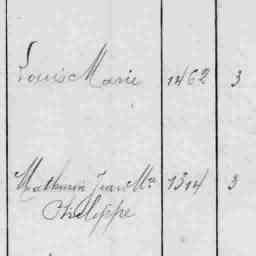 Louis Marie 1462 3
Mathurin Jean Mie 1314 3
Philippe